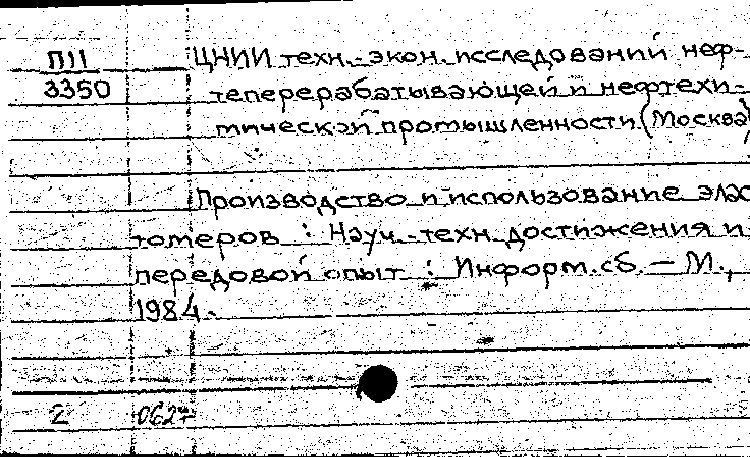 П11
3350
ЦНИИ техн.-экон. исследований неф-
теперерабатывающей и нефтехи-
мической промышленности (Москва)
Производство и использование элас
томеров : Науч.-техн. достижения и
передовой опыт : Информ. сб. — М.,
1984.
2 0627